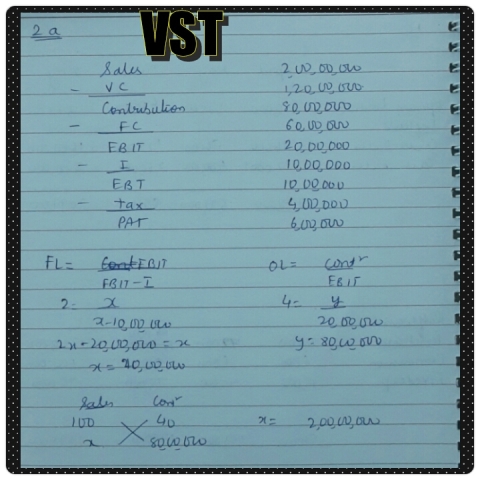 VST
2 a
Sales 2,00,00,000
- VC 1,20,00,000
Contribution 80,00,000
- FC 60,00,000
EBIT 20,00,000
- I 10,00,000
EBT 10,00,000
- tax 4,00,000
PAT 6,00,000
FL = EBIT OL = Contr
EBIT - I EBIT
2 = x 4 = y
x - 10,00,000 20,00,000
2x - 20,00,000 = x y = 80,00,000
x = 20,00,000
Sales Contr
100 40 x = 2,00,00,000
x 80,00,000